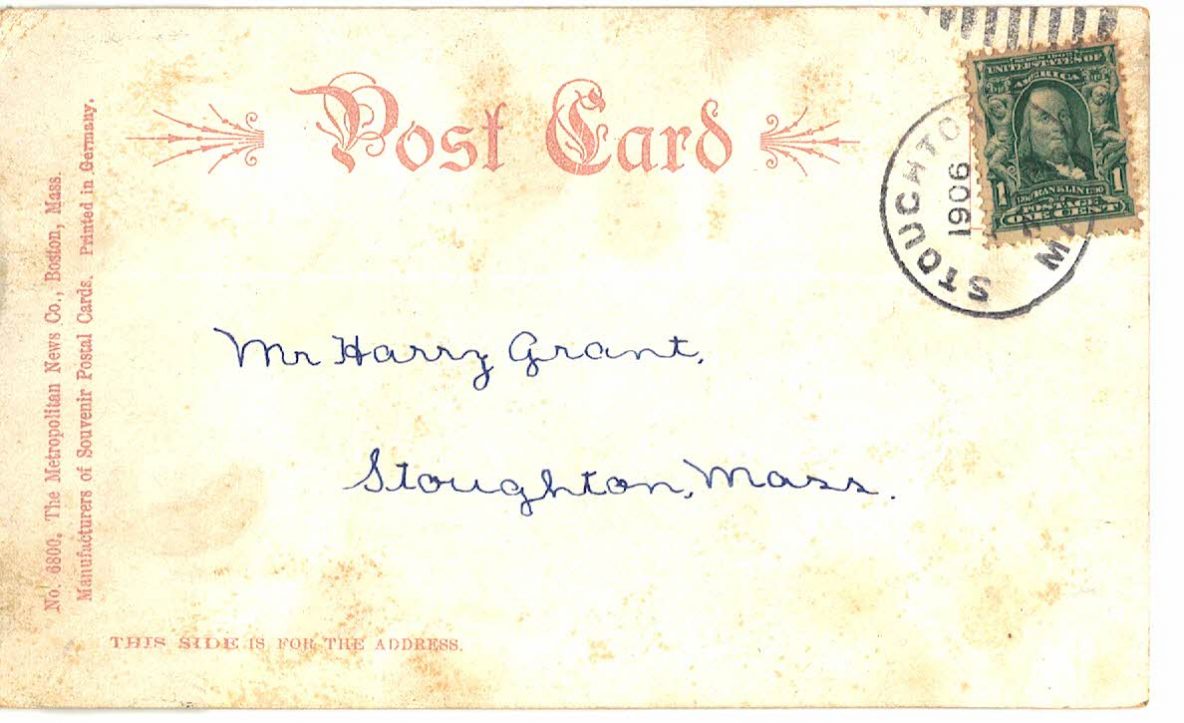 Post Card
No. 6800. The Metropolitan News Co., Boston, Mass.
Manufacturers of Souvenir Postal Cards. Printed in Germany.
SERIES 1902
UNITED STATES OF
AMERICA
1 FRANKLIN 1
POSTAGE
ONE CENT
STOUGHTO
1906
MA
Mr Harry Grant,
Stoughton, Mass.
THIS SIDE IS FOR THE ADDRESS.